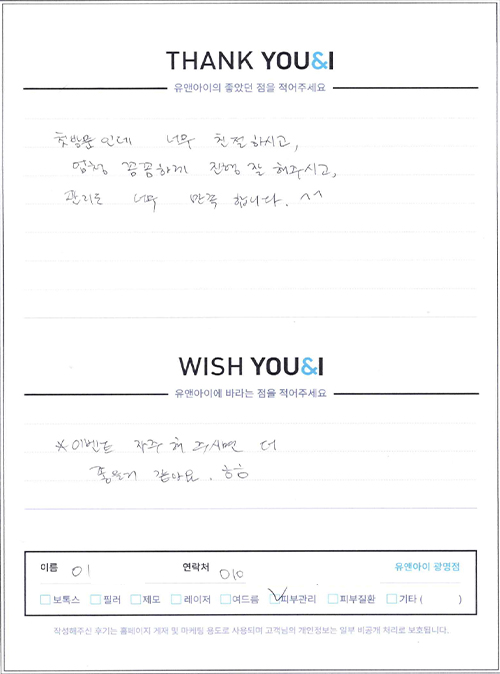 THANK YOU&I
유앤아이의 좋았던 점을 적어주세요
첫방문인데 너무 친절하시고,
엄청 꼼꼼하게 진행 잘 해주시고,
관리도 너무 만족 합니다. ^^
WISH YOU&I
유앤아이에 바라는 점을 적어주세요
※이벤트 자주 해 주시면 더
좋을거 같아요. ㅎㅎ
이름 이 연락처 010 유앤아이 광명점
보톡스 필러 제모 레이저 여드름 피부관리 피부질환 기타 ( )
작성해주신 후기는 홈페이지 게재 및 마케팅 용도로 사용되며 고객님의 개인정보는 일부 비공개 처리로 보호됩니다.